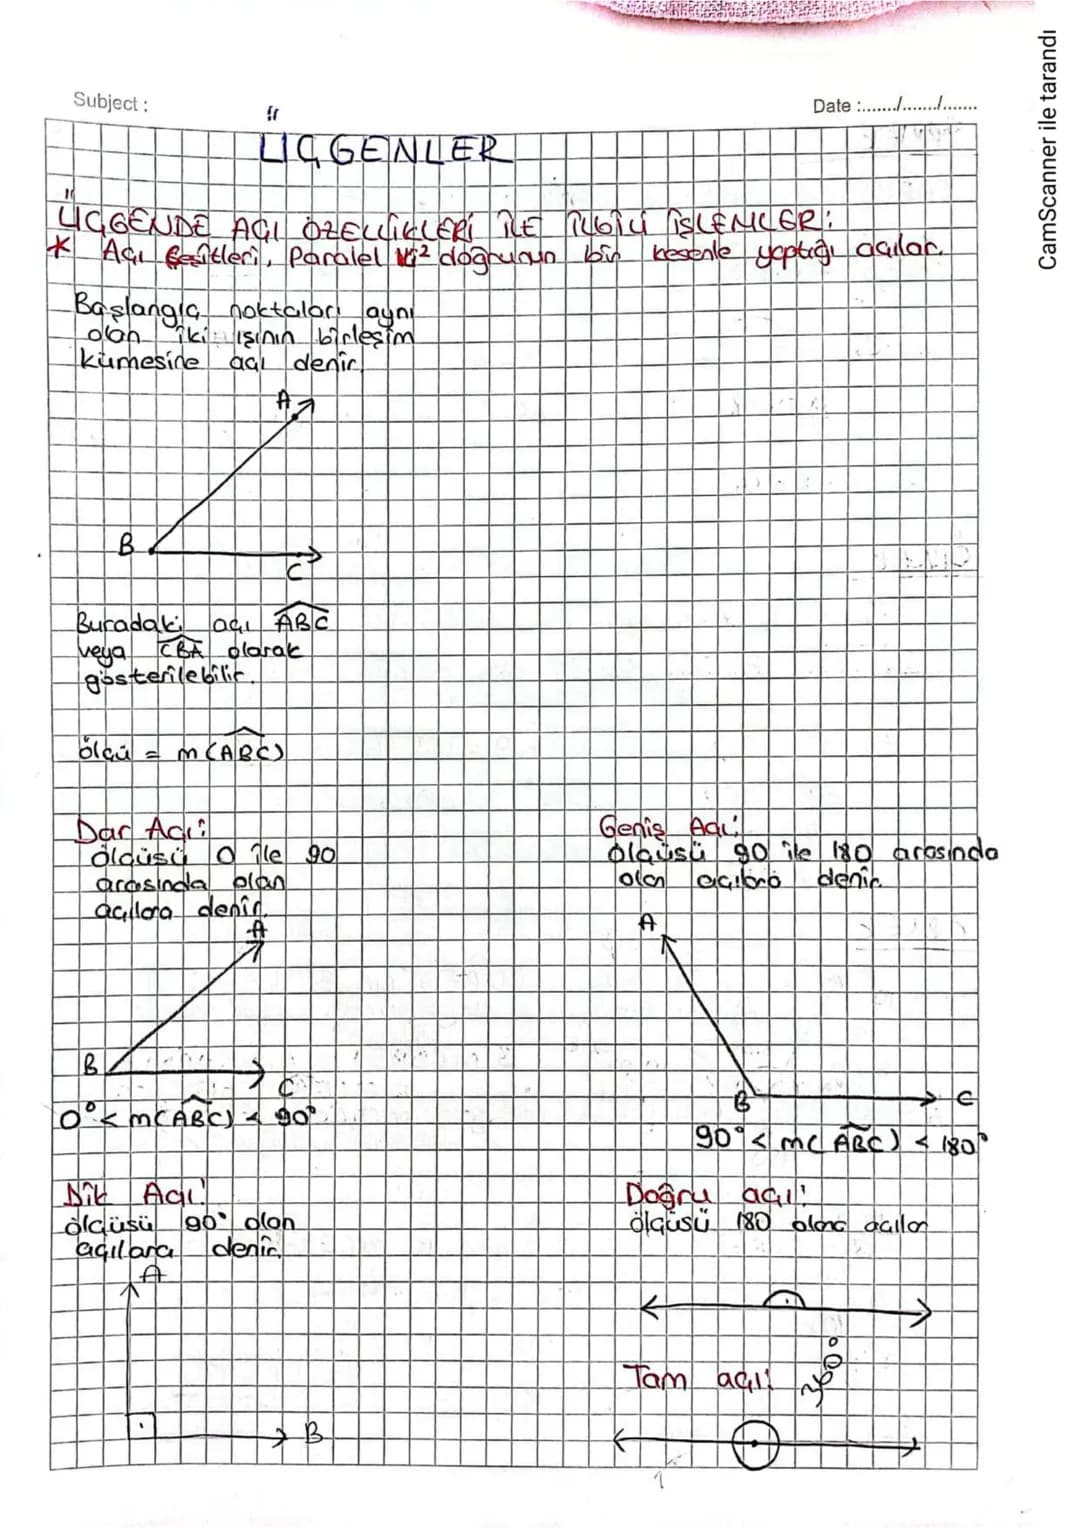 Subject :
Date :......./......./.......
ÜÇGENLER
ÜÇGENDE AÇI ÖZELLİKLERİ İLE İLGİLİ İŞLEMLER:
* Açı Çeşitleri, Paralel 2 doğrunun bir kesenle yaptığı açılar.
Başlangıç noktaları aynı
olan iki ışının birleşim
kümesine açı denir.
A
B
C
Buradaki açı ABC
veya CBA olarak
gösterilebilir.
ölçü = m(ABC)
Dar Açı:
ölçüsü 0 ile 90
arasında olan
açılara denir.
A
B
C
0° < m(ABC) < 90°
Geniş Açı:
ölçüsü 90 ile 180 arasında
olan açılara denir.
A
B
C
90° < m(ABC) < 180°
Dik Açı:
ölçüsü 90° olan
açılara denir.
A
B
Doğru açı:
ölçüsü 180 olan açılar
Tam açı:
360°
CamScanner ile tarandı